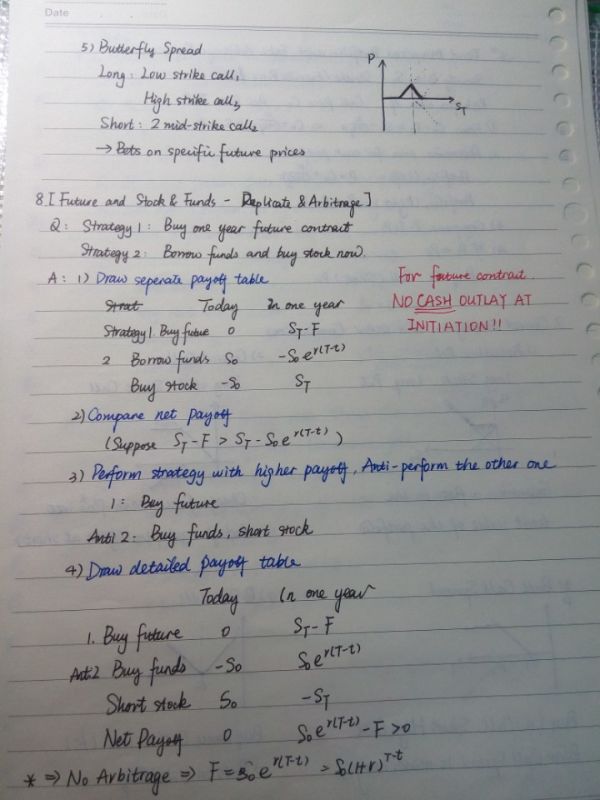 Date
5) Butterfly Spread
P
Long: Low strike call,
High strike call,
ST
Short: 2 mid-strike calls
→ Bets on specific future prices
8 [Future and Stock & Funds - Replicate & Arbitrage]
Q: Strategy 1: Buy one year future contract
Strategy 2: Borrow funds and buy stock now.
A: 1) Draw seperate payoff table
For future contract
Strat Today In one year
NO CASH OUTLAY AT
Strategy 1. Buy future 0 ST-F
INITIATION!!
2 Borrow funds S0 -S0e^r(T-t)
Buy stock -S0 ST
2) Compare net payoff
(Suppose ST-F > ST-S0e^r(T-t))
3) Perform strategy with higher payoff, Anti-perform the other one
1: Buy future
Anti 2: Buy funds, short stock
4) Draw detailed payoff table
Today In one year
1. Buy future 0 ST-F
Anti2 Buy funds -S0 S0e^r(T-t)
Short stock S0 -ST
Net Payoff 0 S0e^r(T-t)-F>0
* ⇒ No Arbitrage ⇒ F=S0e^r(T-t) = S0(1+r)^T-t